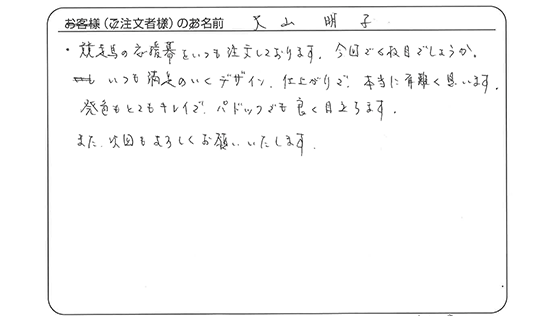 お客様(ご注文者様)のお名前 大山 明子
・競走馬の応援幕をいつも注文しております。今回で6枚目でしょうか。
いつも満足のいくデザイン、仕上がりで、本当に有難く思います。
発色もとてもキレイで、パドックでも良く目立ちます。
また、次回もよろしくお願いいたします。